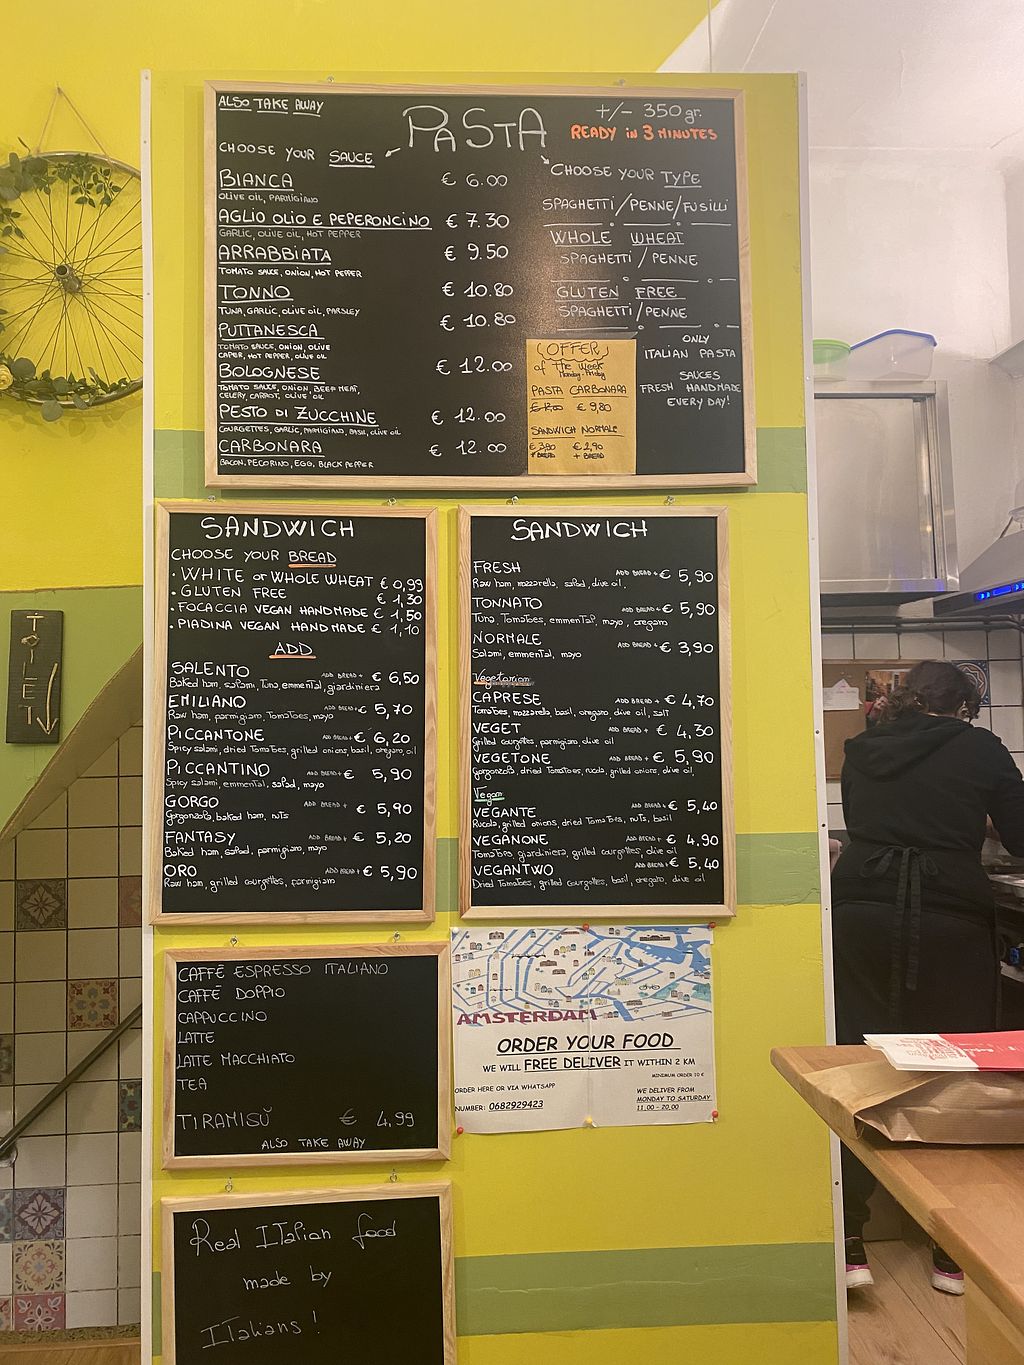 ALSO TAKE AWAY
PASTA
+/- 350 gr.
READY in 3 MINUTES
CHOOSE YOUR SAUCE
BIANCA € 6.00
OLIVE OIL, PARMIGIANO
AGLIO OLIO E PEPERONCINO € 7.30
GARLIC, OLIVE OIL, HOT PEPPER
ARRABBIATA € 9.50
TOMATO SAUCE, ONION, HOT PEPPER
TONNO € 10.80
TUNA, GARLIC, OLIVE OIL, PARSLEY
PUTTANESCA € 10.80
TOMATO SAUCE, ONION, OLIVE
CAPER, HOT PEPPER, OLIVE OIL
BOLOGNESE € 12.00
TOMATO SAUCE, ONION, BEEF MEAT,
CELERY, CARROT, OLIVE OIL
PESTO DI ZUCCHINE € 12.00
COURGETTES, GARLIC, PARMIGIANO, BASIL, OLIVE OIL
CARBONARA € 12.00
BACON, PECORINO, EGG, BLACK PEPPER
CHOOSE YOUR TYPE
SPAGHETTI/PENNE/FUSILLI
WHOLE WHEAT
SPAGHETTI / PENNE
GLUTEN FREE
SPAGHETTI/PENNE
ONLY
ITALIAN PASTA
SAUCES
FRESH HANDMADE
EVERY DAY!
(OFFER)
of the week
Monday-Friday
PASTA CARBONARA
€ 12,00 € 9,80
SANDWICH NORMALE
€ 3,90 € 2,90
+ BREAD + BREAD
SANDWICH
CHOOSE YOUR BREAD
• WHITE or WHOLE WHEAT € 0,99
• GLUTEN FREE € 1,30
• FOCACCIA VEGAN HANDMADE € 1,50
• PIADINA VEGAN HANDMADE € 1,10
ADD
SALENTO ADD BREAD + € 6,50
Baked ham, salami, Tuna, emmental, giardiniera
EMILIANO ADD BREAD + € 5,70
Raw ham, parmigiano, Tomatoes, mayo
PICCANTONE ADD BREAD + € 6,20
Spicy salami, dried Tomatoes, grilled onions, basil, oregano, oil
PICCANTINO ADD BREAD + € 5,90
Spicy salami, emmental, salad, mayo
GORGO ADD BREAD + € 5,90
Gorgonzola, baked ham, nuts
FANTASY ADD BREAD + € 5,20
Baked ham, salad, parmigiano, mayo
ORO ADD BREAD + € 5,90
Raw ham, grilled courgettes, parmigiano
SANDWICH
FRESH ADD BREAD + € 5,90
Raw ham, mozzarella, salad, olive oil.
TONNATO ADD BREAD + € 5,90
Tuna, Tomatoes, emmental, mayo, oregano
NORMALE ADD BREAD + € 3,90
Salami, emmental, mayo
Vegetarian
CAPRESE ADD BREAD + € 4,70
Tomatoes, mozzarella, basil, oregano, olive oil, salt
VEGET ADD BREAD + € 4,30
Grilled courgettes, parmigiano, olive oil
VEGETONE ADD BREAD + € 5,90
Gorgonzola, dried Tomatoes, rucola, grilled onions, olive oil
Vegan
VEGANTE ADD BREAD + € 5,40
Rucola, grilled onions, dried Tomatoes, nuts, basil
VEGANONE ADD BREAD + € 4.90
Tomatoes, giardiniera, grilled courgettes, olive oil
VEGANTWO ADD BREAD + € 5,40
Dried Tomatoes, grilled courgettes, basil, oregano, olive oil
TOILET
CAFFÈ ESPRESSO ITALIANO
CAFFÈ DOPPIO
CAPPUCCINO
LATTE
LATTE MACCHIATO
TEA
TIRAMISŬ € 4,99
ALSO TAKE AWAY
AMSTERDAM
ORDER YOUR FOOD
WE WILL FREE DELIVER IT WITHIN 2 KM
MINIMUM ORDER 10 €
ORDER HERE OR VIA WHATSAPP
NUMBER: 0682929423
WE DELIVER FROM
MONDAY TO SATURDAY
11.00 - 20.00
Real ITalian food
made by
ITalians!